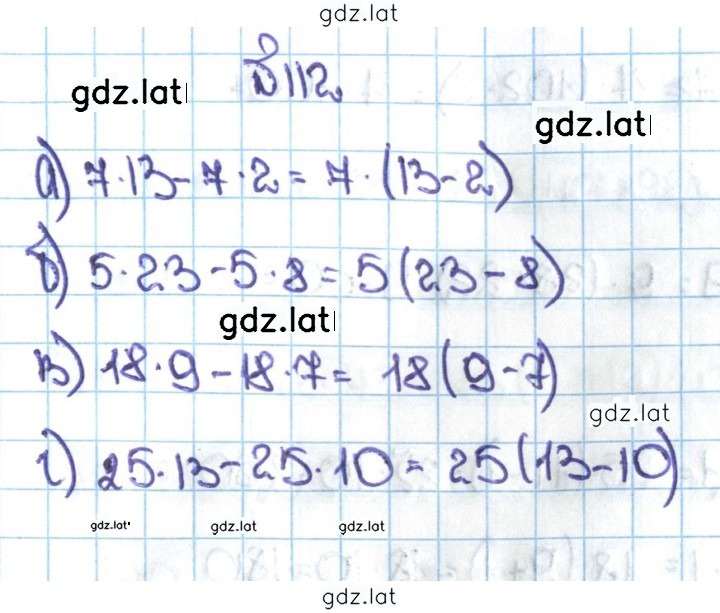 gdz.lat
№112
gdz.lat
gdz.lat
а) 7·13-7·2= 7·(13-2)
б) 5·23-5·8=5(23-8)
gdz.lat
в) 18·9-18·7= 18(9-7)
gdz.lat
г) 25·13-25·10= 25(13-10)
gdz.lat gdz.lat gdz.lat
gdz.lat